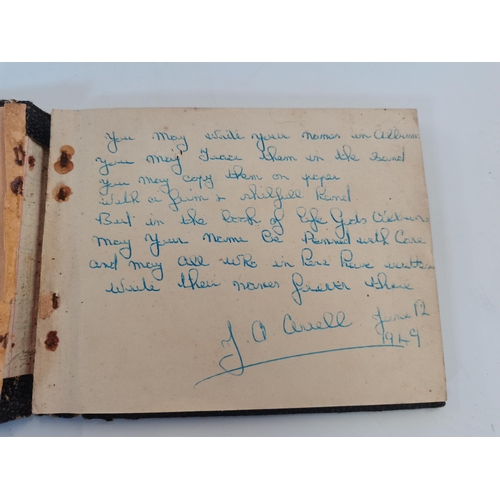 You may write your names in Albums
You may Trace them in the Sand
You may copy them on paper
With a firm & skilfull hand
But in the book of life Gods Album
May Your Name be Penned with Care
and may All who in here have written
Write their names forever there
J. A June 12
1949